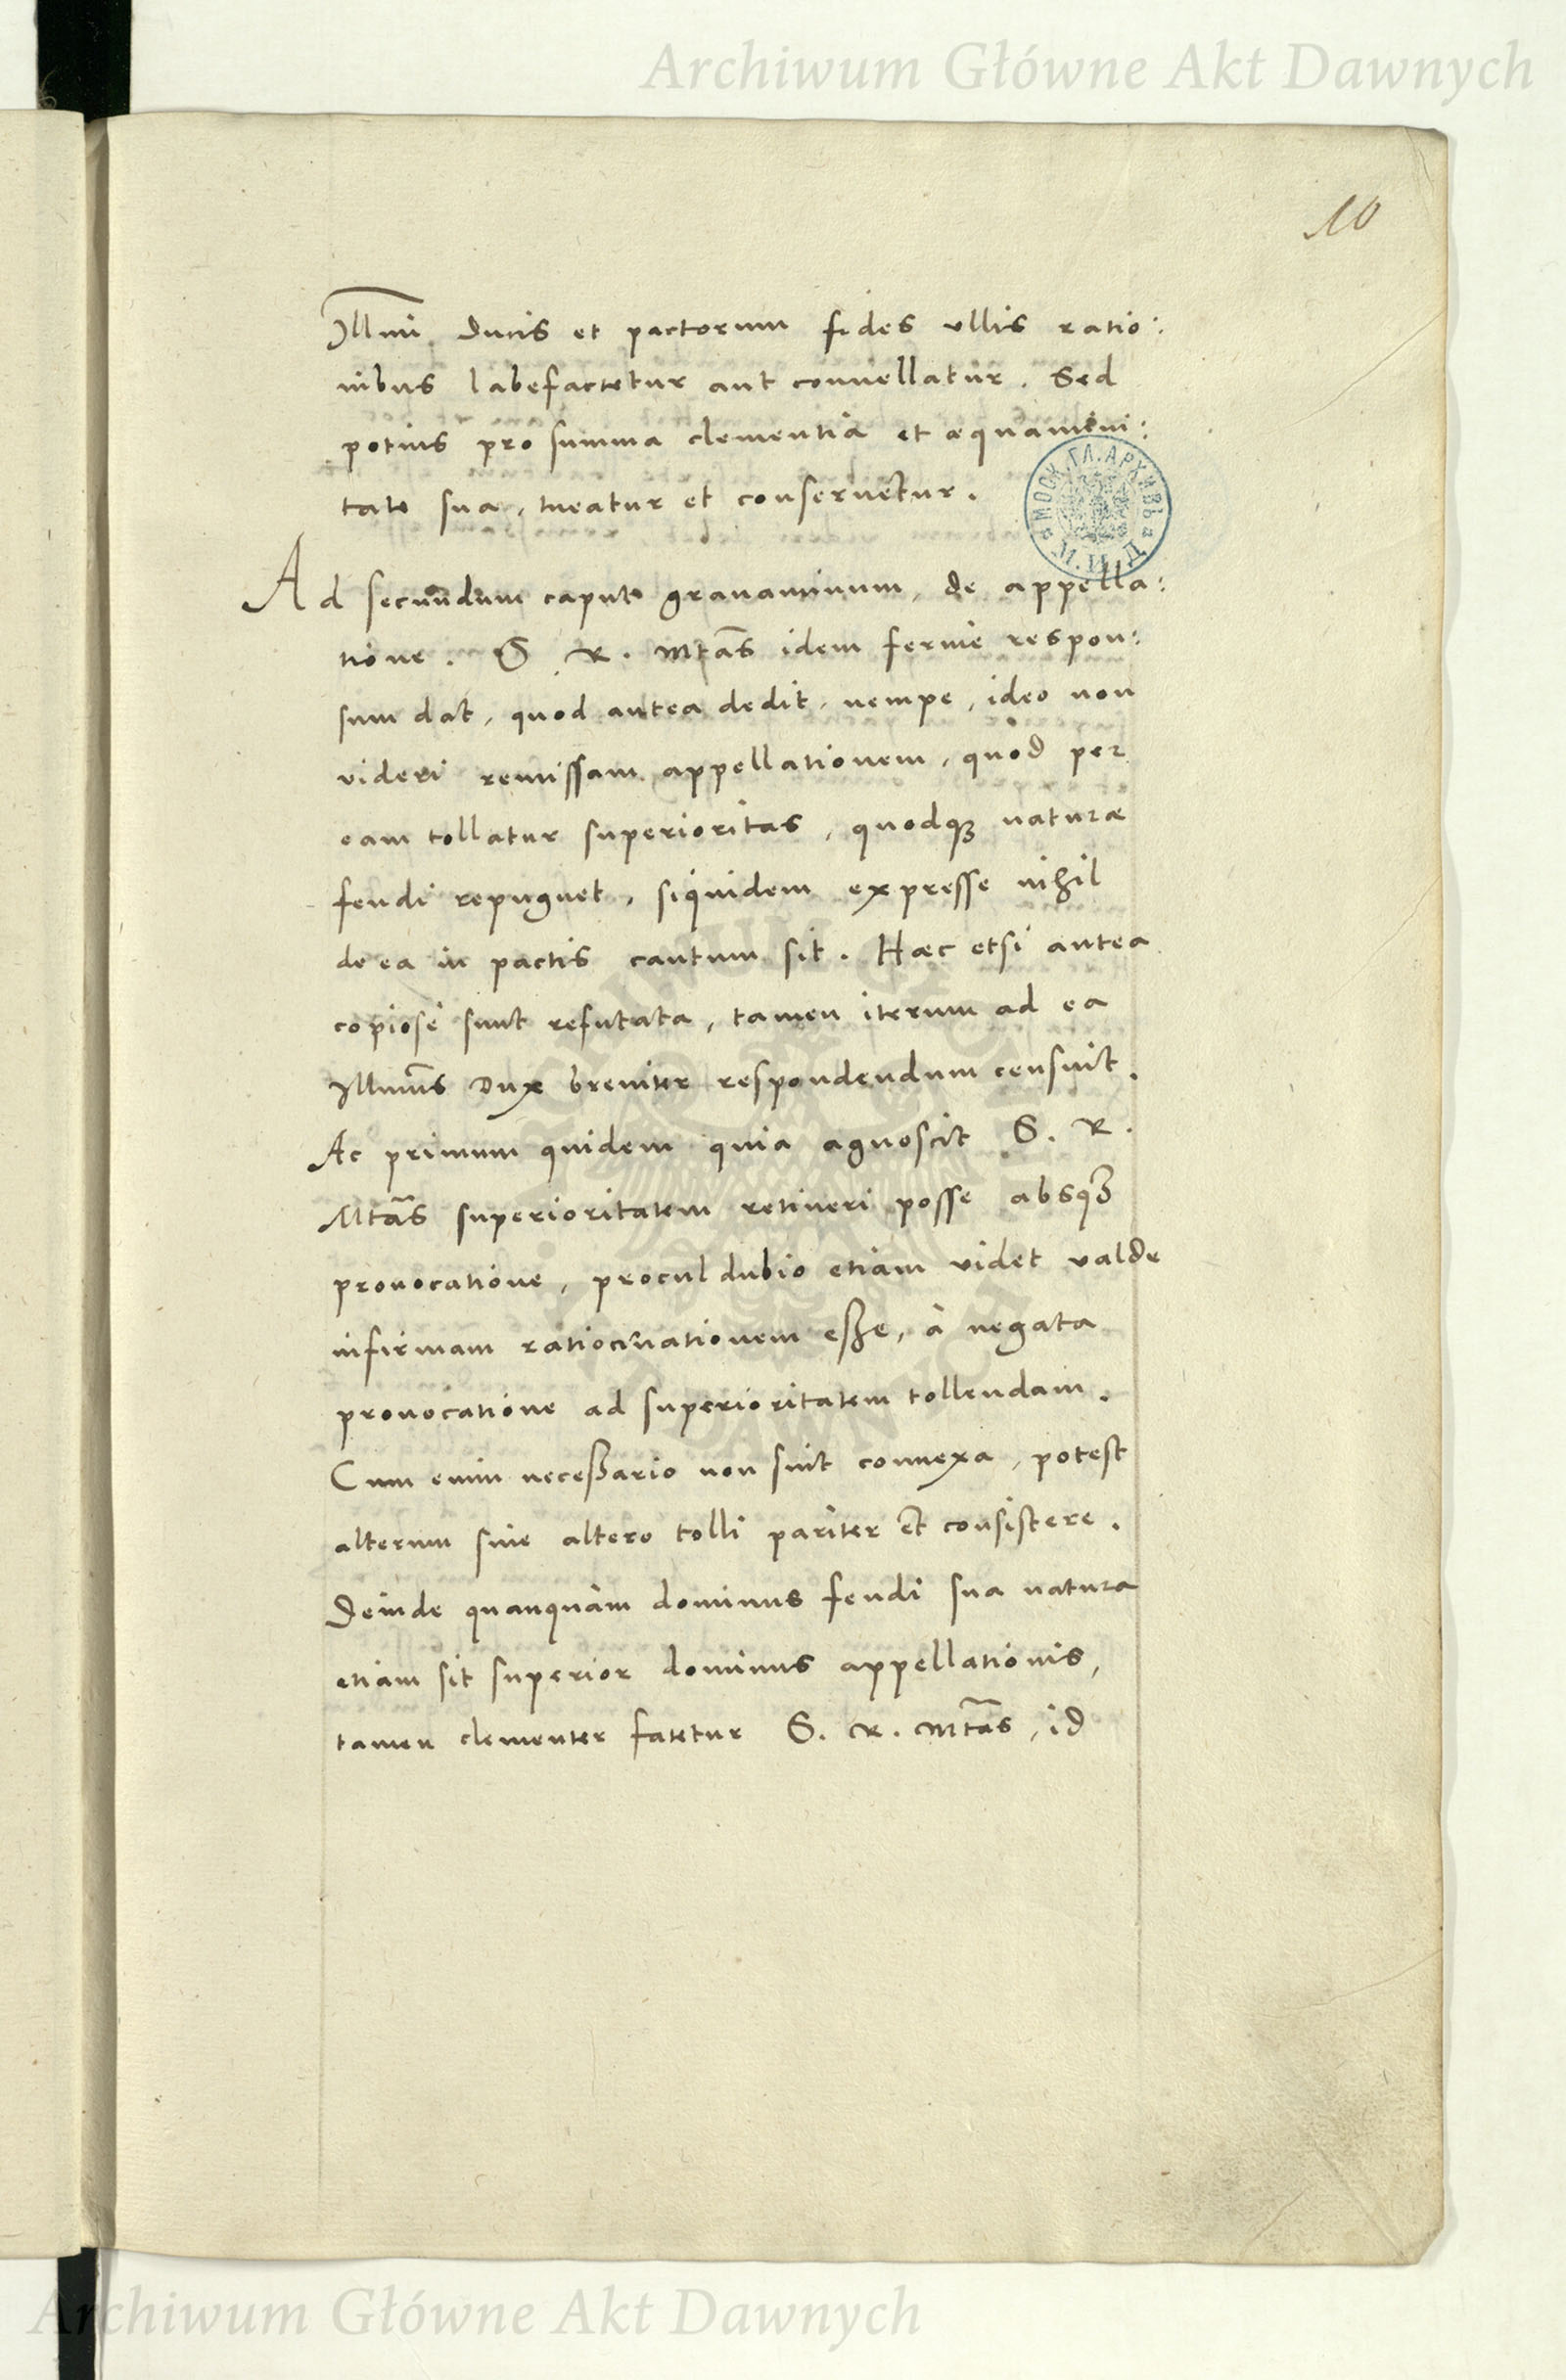 Archiwum Główne Akt Dawnych
10
Illmi Ducis et pactorum fides ullis ratio:
nibus labefactetur aut convellatur. Sed
potius pro summa clementia et æquanimi:
tate sua, tueatur et conservetur.
МОСК. ГЛ. АРХИВЪ
М. И. Д.
Ad secundum caput gravaminum, de appella:
tione. S. R. Mtas idem ferme respon:
sum dat, quod antea dedit, nempe, ideo non
videri remissam appellationem, quod per
eam tollatur superioritas, quodq; naturæ
feudi repugnet, siquidem expresse nihil
de ea in pactis cautum sit. Hæc etsi antea
copiosè sunt refutata, tamen iterum ad ea
Illmus Dux breviter respondendum censuit.
Ac primum quidem quia agnoscit S. R.
Mtas superioritatem retineri posse absq;
provocatione, procul dubio etiam videt valde
infirmam ratiocinationem esse, à negata
provocatione ad superioritatem tollendam.
Cum enim necessario non sint connexa, potest
alterum sine altero tolli pariter et consistere.
Deinde quanquam dominus feudi sua natura
etiam sit superior dominus appellationis,
tamen clementer fatetur S. R. Mtas, id
Archiwum Główne Akt Dawnych